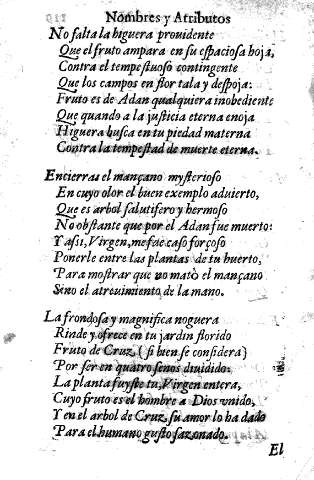 Nombres y Atributos
No falta la higuera prouidente
Que el fruto ampara en su espaciosa hoja,
Contra el tempestuoso contingente
Que los campos en flor tala y despoja:
Fruto es de Adan qualquiera inobediente
Que quando a la justicia eterna enoja
Higuera busca en tu piedad materna
Contra la tempestad de muerte eterna.
Encierra el mançano mysterioso
En cuyo olor el buen exemplo aduierto,
Que es arbol salutifero y hermoso
No obstante que por el Adan fue muerto:
Y assi, Virgen, me fue caso forçoso
Ponerle entre las plantas de tu huerto,
Para mostrar que no matò el mançano
Sino el atreuimiento de la mano.
La frondosa y magnifica noguera
Rinde y ofrece en tu jardin florido
Fruto de Cruz, (si bien se considera)
Por ser en quatro senos diuidido:
La planta fuyste tu, Virgen entera,
Cuyo fruto es el hombre a Dios vnido,
Y en el arbol de Cruz, su amor lo ha dado
Para el humano gusto sazonado.
El